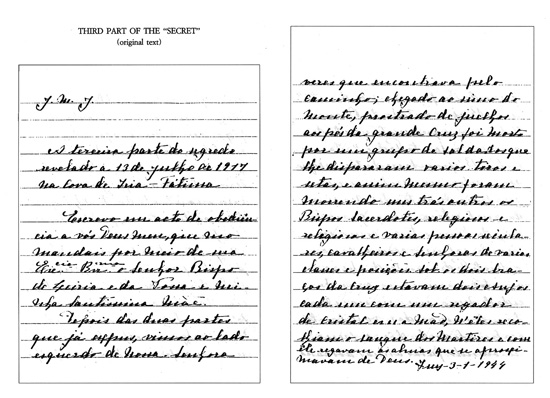 THIRD PART OF THE "SECRET"
(original text)
J. M. J.
A terceira parte do segredo
revelado a 13 de julho de 1917
na Cova de Iria – Fátima
Escrevo em acto de obediên
cia a vós Deus meu, que mo
mandais por meio de sua
Ex.cia Rev.ma o Senhor Bispo
de Leiria e da Vossa e mi-
nha Santíssima Mãe.
Depois das duas partes
que já expus, vimos ao lado
esquerdo de Nossa Senhora
veres que encontrava pelo
caminho; chegado ao cimo do
monte, prostrado de juelhos
aos pés da grande Cruz foi morto
por um grupo de soldados que
lhe dispararam varios tiros e
setas, e assim mesmo foram
morrendo uns trás outros os
Bispos Sacerdotes, religiosos e
religiosas e varias pessoas secula
res, cavalheiros e senhoras de varias
classes e posições. Sob os dois bra-
ços da Cruz estavam dois Anjos
cada um com um regador
de cristal em a mão, n'êles reco-
lhiam o sangue dos Martires e com
êle regavam as almas que se aproxi-
mavam de Deus.
Tuy-3-1-1944